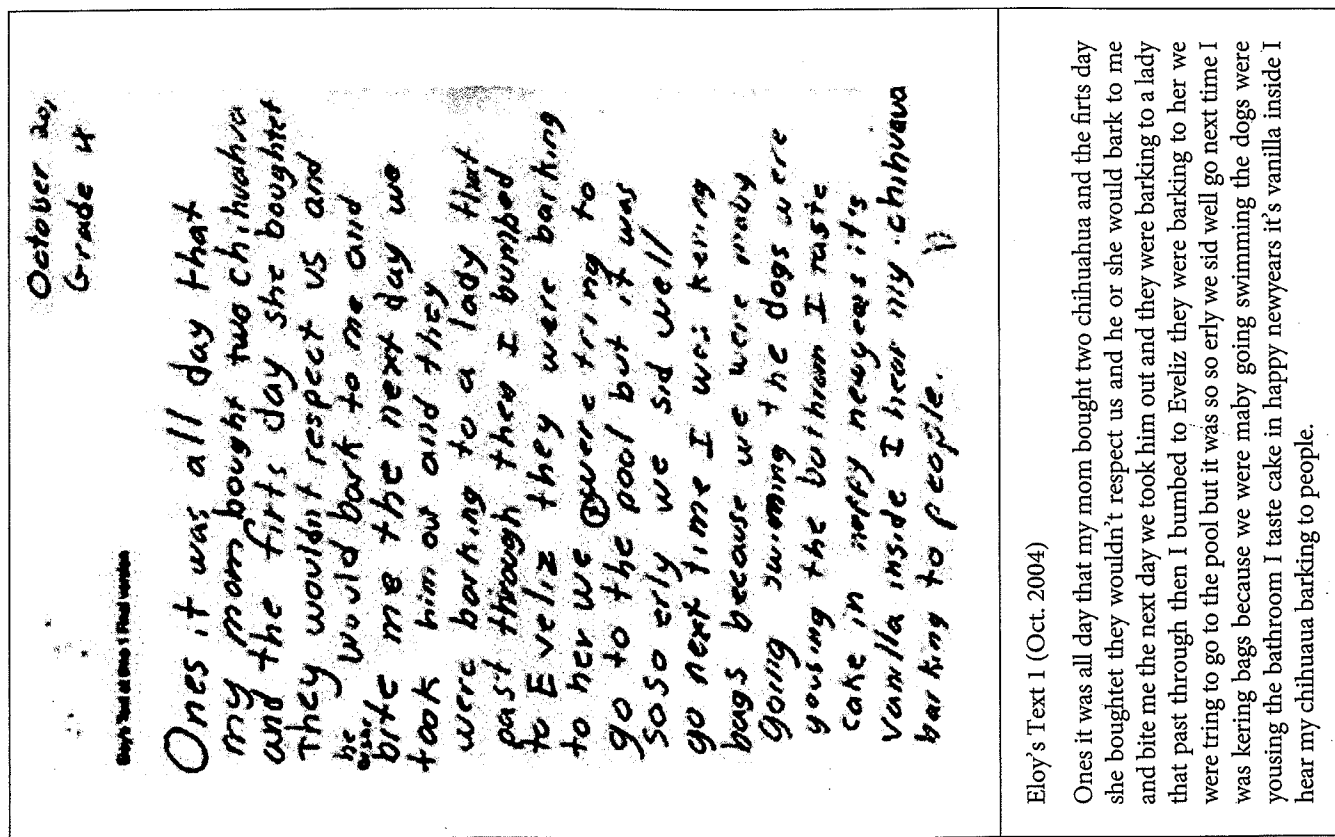 October 20,
Grade 4
Eloy's Text at time 1 Final version
Ones it was all day that
my mom bought two chihuahua
and the firts day she boughtet
They wouldn't respect us and
he would bark to me and
or she
bite me the next day we
took him out and they
were barking to a lady that
past through then I bumbed
to Eveliz they were barking
to her we were tring to
go to the pool but it was
so so erly we sid well
go next time I was kering
bags because we were maby
going swiming the dogs were
yousing the bathrom I taste
cake in happy newyears it's
vanilla inside I hear my chihuaua
barking to people.
Eloy's Text 1 (Oct. 2004)
Ones it was all day that my mom bought two chihuahua and the firts day
she boughtet they wouldn't respect us and he or she would bark to me
and bite me the next day we took him out and they were barking to a lady
that past through then I bumbed to Eveliz they were barking to her we
were tring to go to the pool but it was so so erly we sid well go next time I
was kering bags because we were maby going swimming the dogs were
yousing the bathroom I taste cake in happy newyears it's vanilla inside I
hear my chihuaua barking to people.